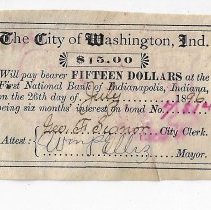 The City of Washington, Ind.
$15.00
Will pay bearer FIFTEEN DOLLARS at the
First National Bank of Indianapolis, Indiana,
on the 26th day of July 189
being six months' interest on bond No.
Geo. City Clerk.
Attest:
Mayor.